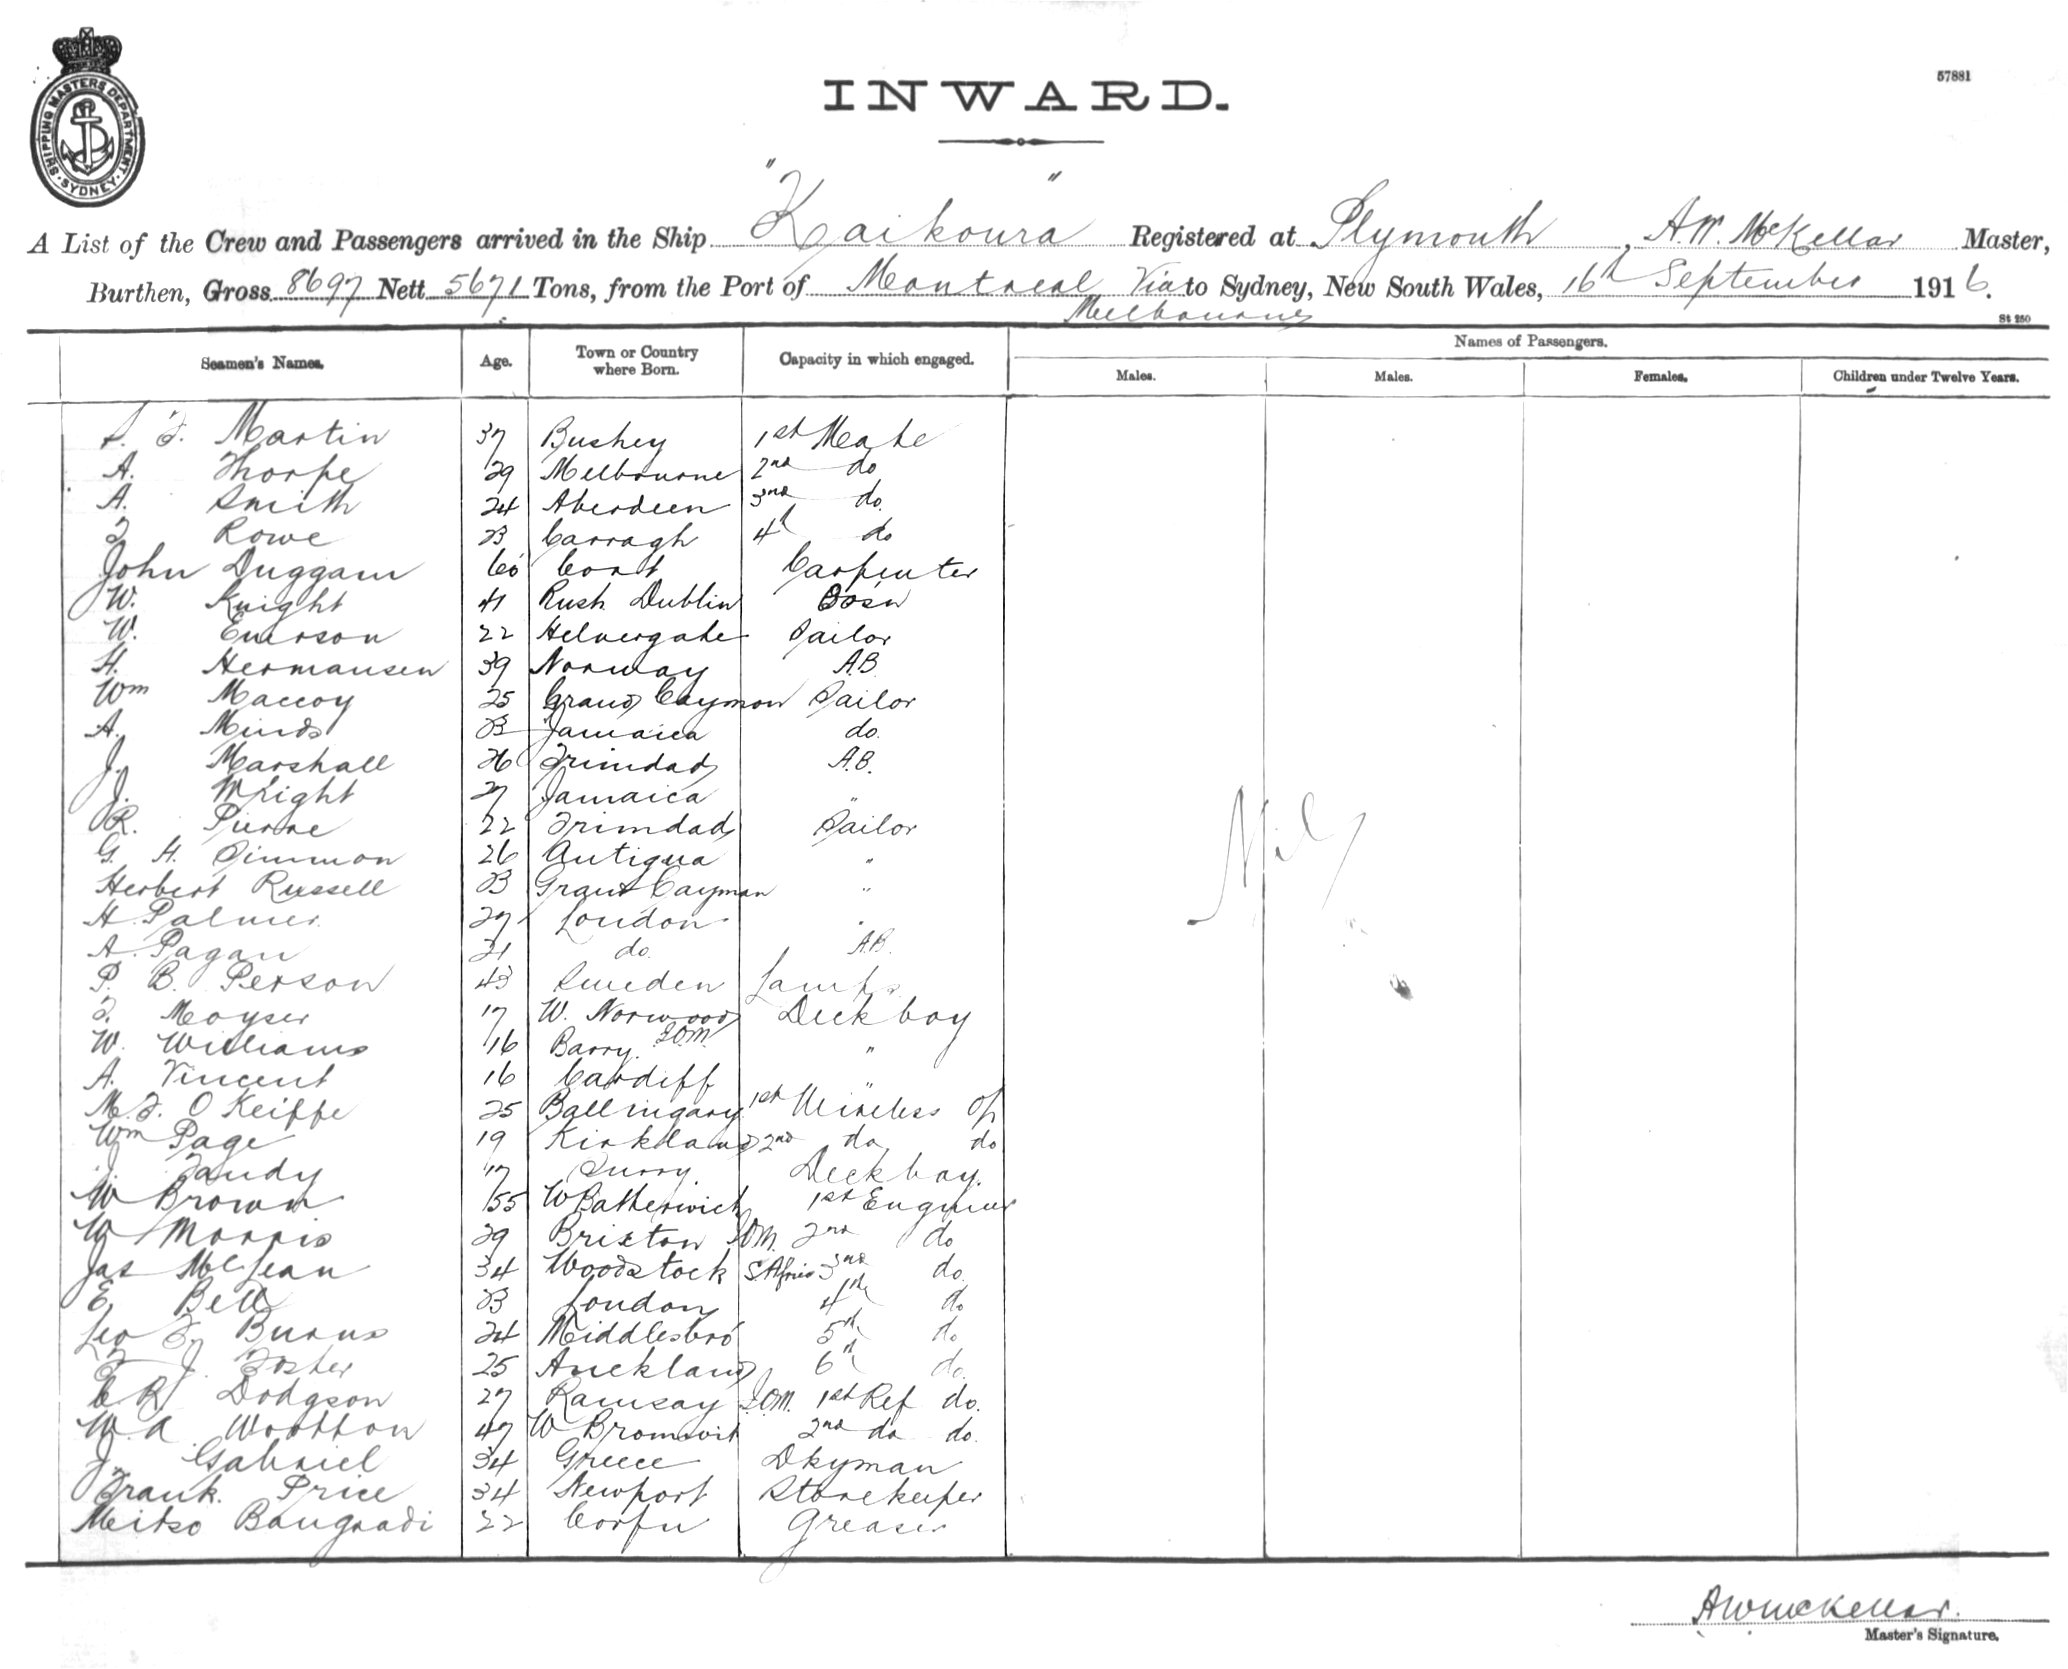 SHIPPING MASTERS DEPARTMENT · SYDNEY ·
57881
INWARD.
A List of the Crew and Passengers arrived in the Ship "Kaikoura" Registered at Plymouth, A.W. McKellar Master,
Burthen, Gross 8697 Nett 5671 Tons, from the Port of Montreal Via to Sydney, New South Wales, 16th September 1916.
Melbourne
St 250
Seamen's Names. Age. Town or Country where Born. Capacity in which engaged. Names of Passengers.
Males. Males. Females. Children under Twelve Years.
S. F. Martin 37 Bushey 1st Mate
A. Thorpe 29 Melbourne 2nd do
A. Smith 24 Aberdeen 3rd do.
F Rowe 23 Carragh 4th do
John Duggam 60 Cork Carpenter
W. Knight 41 Rush Dublin Bosn
W. Emerson 22 Helvergate Sailor
H. Hermansen 39 Norway A.B.
Wm Maccoy 25 Grand Caymon Sailor
A. Minds 23 Jamaica do.
J. Marshall 26 Trinidad A.B.
J. Wright 27 Jamaica "
R. Pierre 22 Trinidad Sailor
G. H. Simmon 26 Antigua "
Herbert Russell 23 Grant Cayman "
H. Palmer 27 London "
A. Pagan 21 do. A.B.
P. B. Person 43 Sweden Lamps
F. Moyser 17 W. Norwood Deck boy
W. Williams 16 Barry. I.O.M. "
A. Vincent 16 Cardiff "
M. F. O Keiffe 25 Ballingary 1st Wireless Op
Wm Page 19 Kirkland 2nd do do
J. Tandy 17 Surry. Deck boy.
W Brown 55 W Batherwick 1st Engineer
W Morris 29 Brixton IOM. 2nd do
Jas McLean 34 Woodstock S. Africa 3rd do.
E. Bell 23 London 4th do
Leo F. Burns 24 Middlesbro 5th do
F J. Foster 25 Auckland 6th do.
C. R. Dodgson 27 Ramsay I.O.M. 1st Ref do.
W. A. Wootton 47 W Bromwit 2nd do do.
J. Gabriel 34 Greece Dkyman
Frank. Price 34 Newport Storekeeper
Meitso Bangradi 22 Corfu Greaser
Nil
AWMcKellar.
Master's Signature.